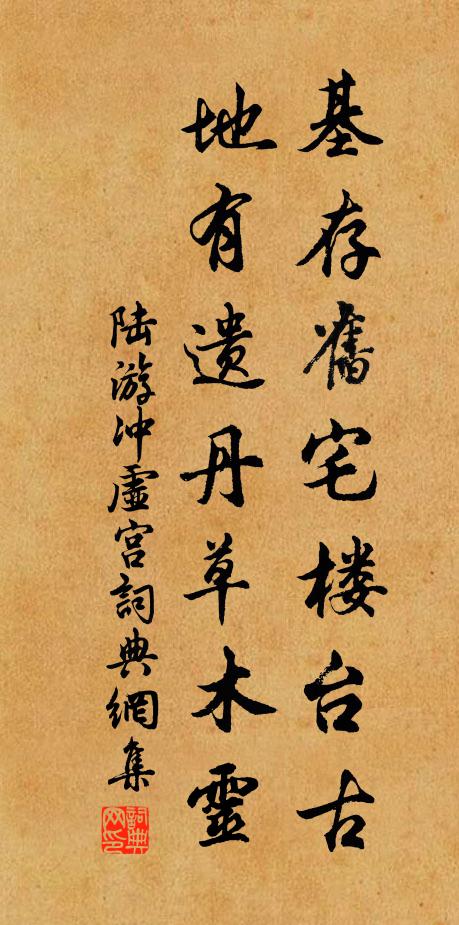 基存舊宅楼台古
地有遗丹草木靈
陆游冲虛宫詞典網集
詞典网印